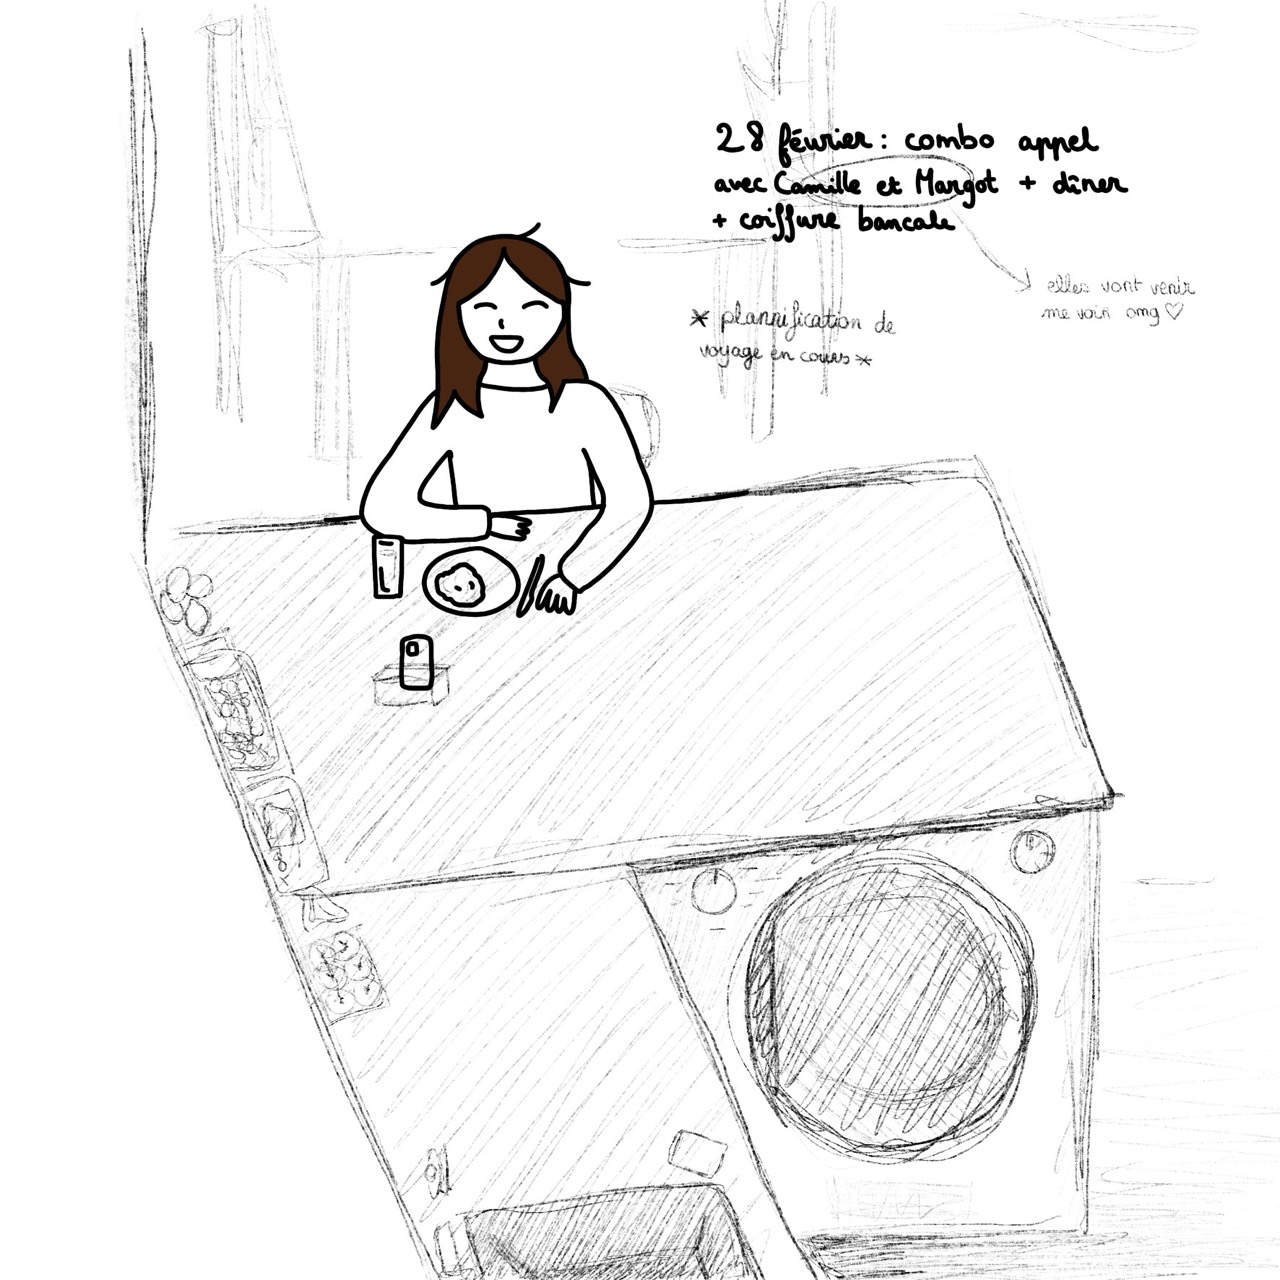 28 février : combo appel
avec Camille et Margot + dîner
+ coiffure bancale
elles vont venir
me voir omg ♡
* plannification de
voyage en cours *